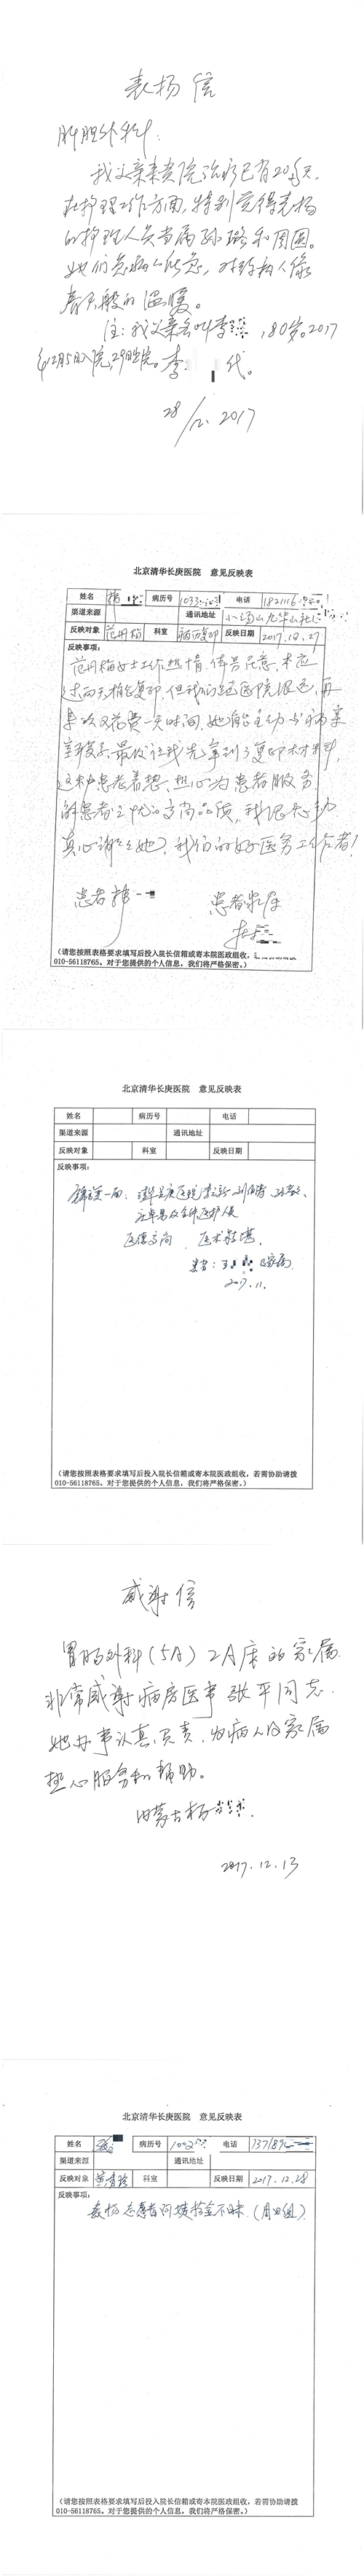 表扬信
肝胆外科：
我父亲来贵院治病已有20多天，
在护理工作方面，特别觉得表扬
的护理人员当属孙璐和周圆。
她们急病人所急，对待病人像
春天般的温暖。
注：我父亲名叫李 ，80岁。2017
年12月5日入院，29日出院。李 代。
28/12.2017
北京清华长庚医院 意见反映表
姓名 病历号 1033 电话 1821116
渠道来源 通讯地址 小汤山九华山
反映对象 范丹梅 科室 病历复印 反映日期 2017.12.27
反映事项：
范丹梅女士工作热情，
过两天才能复印，但我们住医院很远，再
来一次又花费一天时间，她能主动与病案
室联系，最后让我先拿到了复印材料，
这种为患者着想，热心为患者服务
的高尚品质，我很感动
真心谢谢她，我们的好医务工作者！
患者 患者家属
（请您按照表格要求填写后投入院长信箱或寄本院医政组收，
010-56118765。对于您提供的个人信息，我们将严格保密。）
北京清华长庚医院 意见反映表
姓名 病历号 电话
渠道来源 通讯地址
反映对象 科室 反映日期
反映事项：
锦旗一面：清华长庚医院
及全体医护人员
医德高尚 医术精湛
患者：王 及家属
2017.11.
（请您按照表格要求填写后投入院长信箱或寄本院医政组收，若需协助请拨
010-56118765。对于您提供的个人信息，我们将严格保密。）
感谢信
胃肠外科（5A）2A床的家属
非常感谢病房医事张平同志
她办事认真、负责，为病人及家属
热心服务和帮助。
内蒙古杨
2017.12.13
北京清华长庚医院 意见反映表
姓名 病历号 1002 电话 137189
渠道来源 通讯地址
反映对象 科室 反映日期 2017.12.28
反映事项：
表扬志愿者 拾金不昧（周四组）
（请您按照表格要求填写后投入院长信箱或寄本院医政组收，若需协助请拨
010-56118765。对于您提供的个人信息，我们将严格保密。）